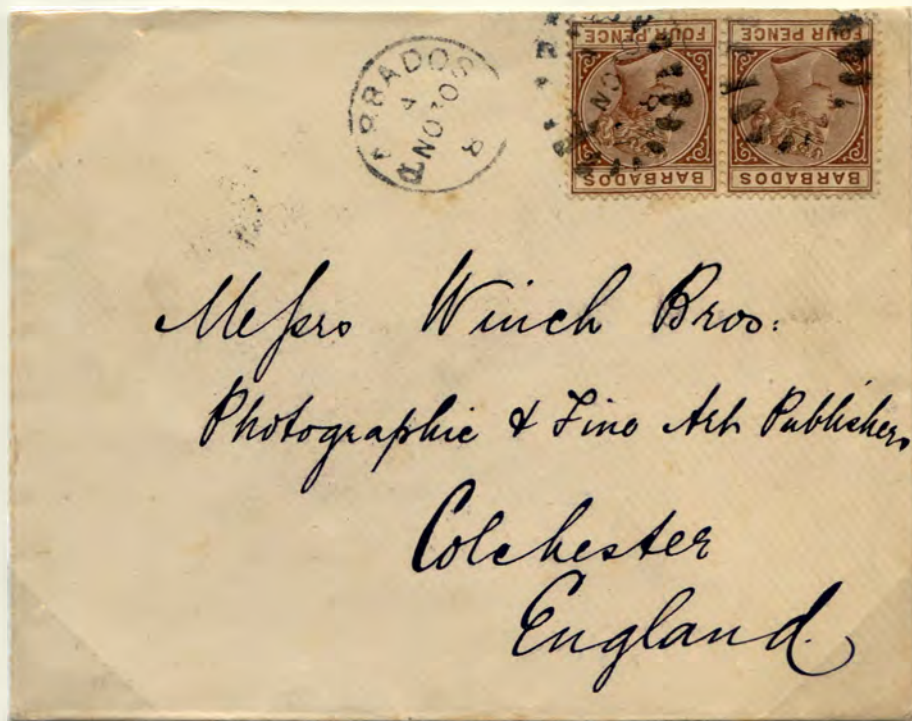 BARBADOS
A
NO 30
8
FOUR PENCE
BARBADOS
FOUR PENCE
BARBADOS
Messrs Winch Bros:
Photographic & Fine Art Publishers
Colchester
England.